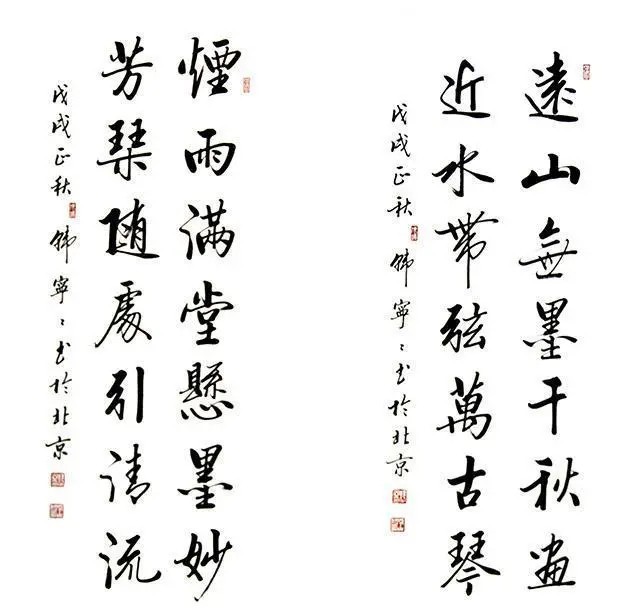 遠山無墨千秋畫
近水帶弦萬古琴
戊戌正秋 韓寧〻书於北京
煙雨滿堂懸墨妙
芳琹隨處引清流
戊戌正秋 韓寧〻书於北京